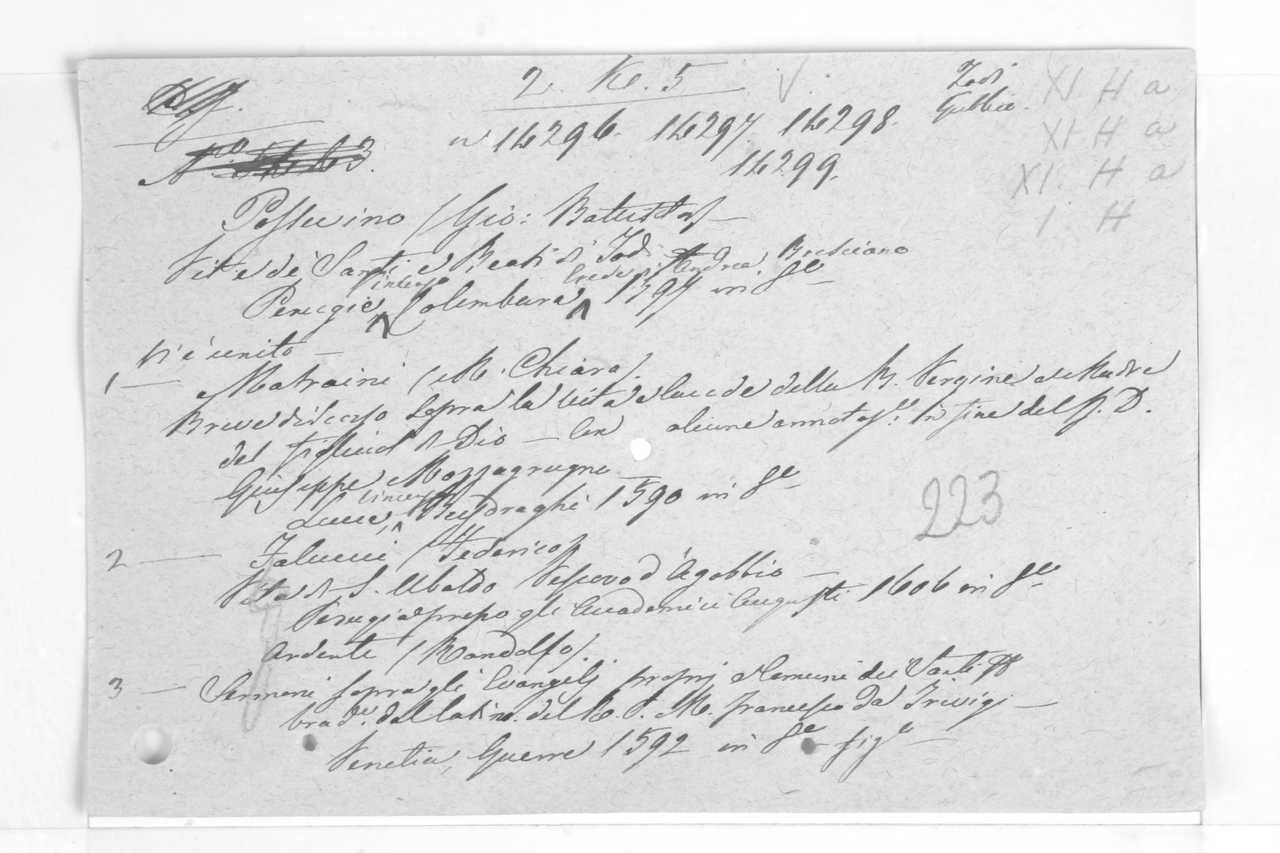 2. K. 5
Todi
Gubbio.
XI H a
XI H a
XI. H a
1. H
nº 14296. 14297 14298.
14299.
Possevino (Gio: Battista) —
Vite de' Santi e Beati di Todi
Perugia, Vincenzo Colombara, erede di Andrea Bresciano 1597 in 8º —
Vi è unito —
1 — Matraini (M. Chiara)
Breve discorso sopra la vita e laude della B. Vergine e Madre
del Figliuol di Dio — Con alcune annotaz.i in fine del P. D.
Giuseppe Mozzagrugno —
Lucca, Vincenzo Busdraghi 1590 in 8º
2 — Falucci (Federico)
Vita di S. Ubaldo Vescovo d'Agobbio —
Perugia presso gli Accademici Augusti 1606 in 8º
3 — Ardente (Randolfo)
Sermoni sopra gli Evangelj proprj e Comuni dei Santi
trad. dal latino del R. P. M. Francesco da Trivigi —
Venetia, Guerra 1592 in 8º fig.º —
223